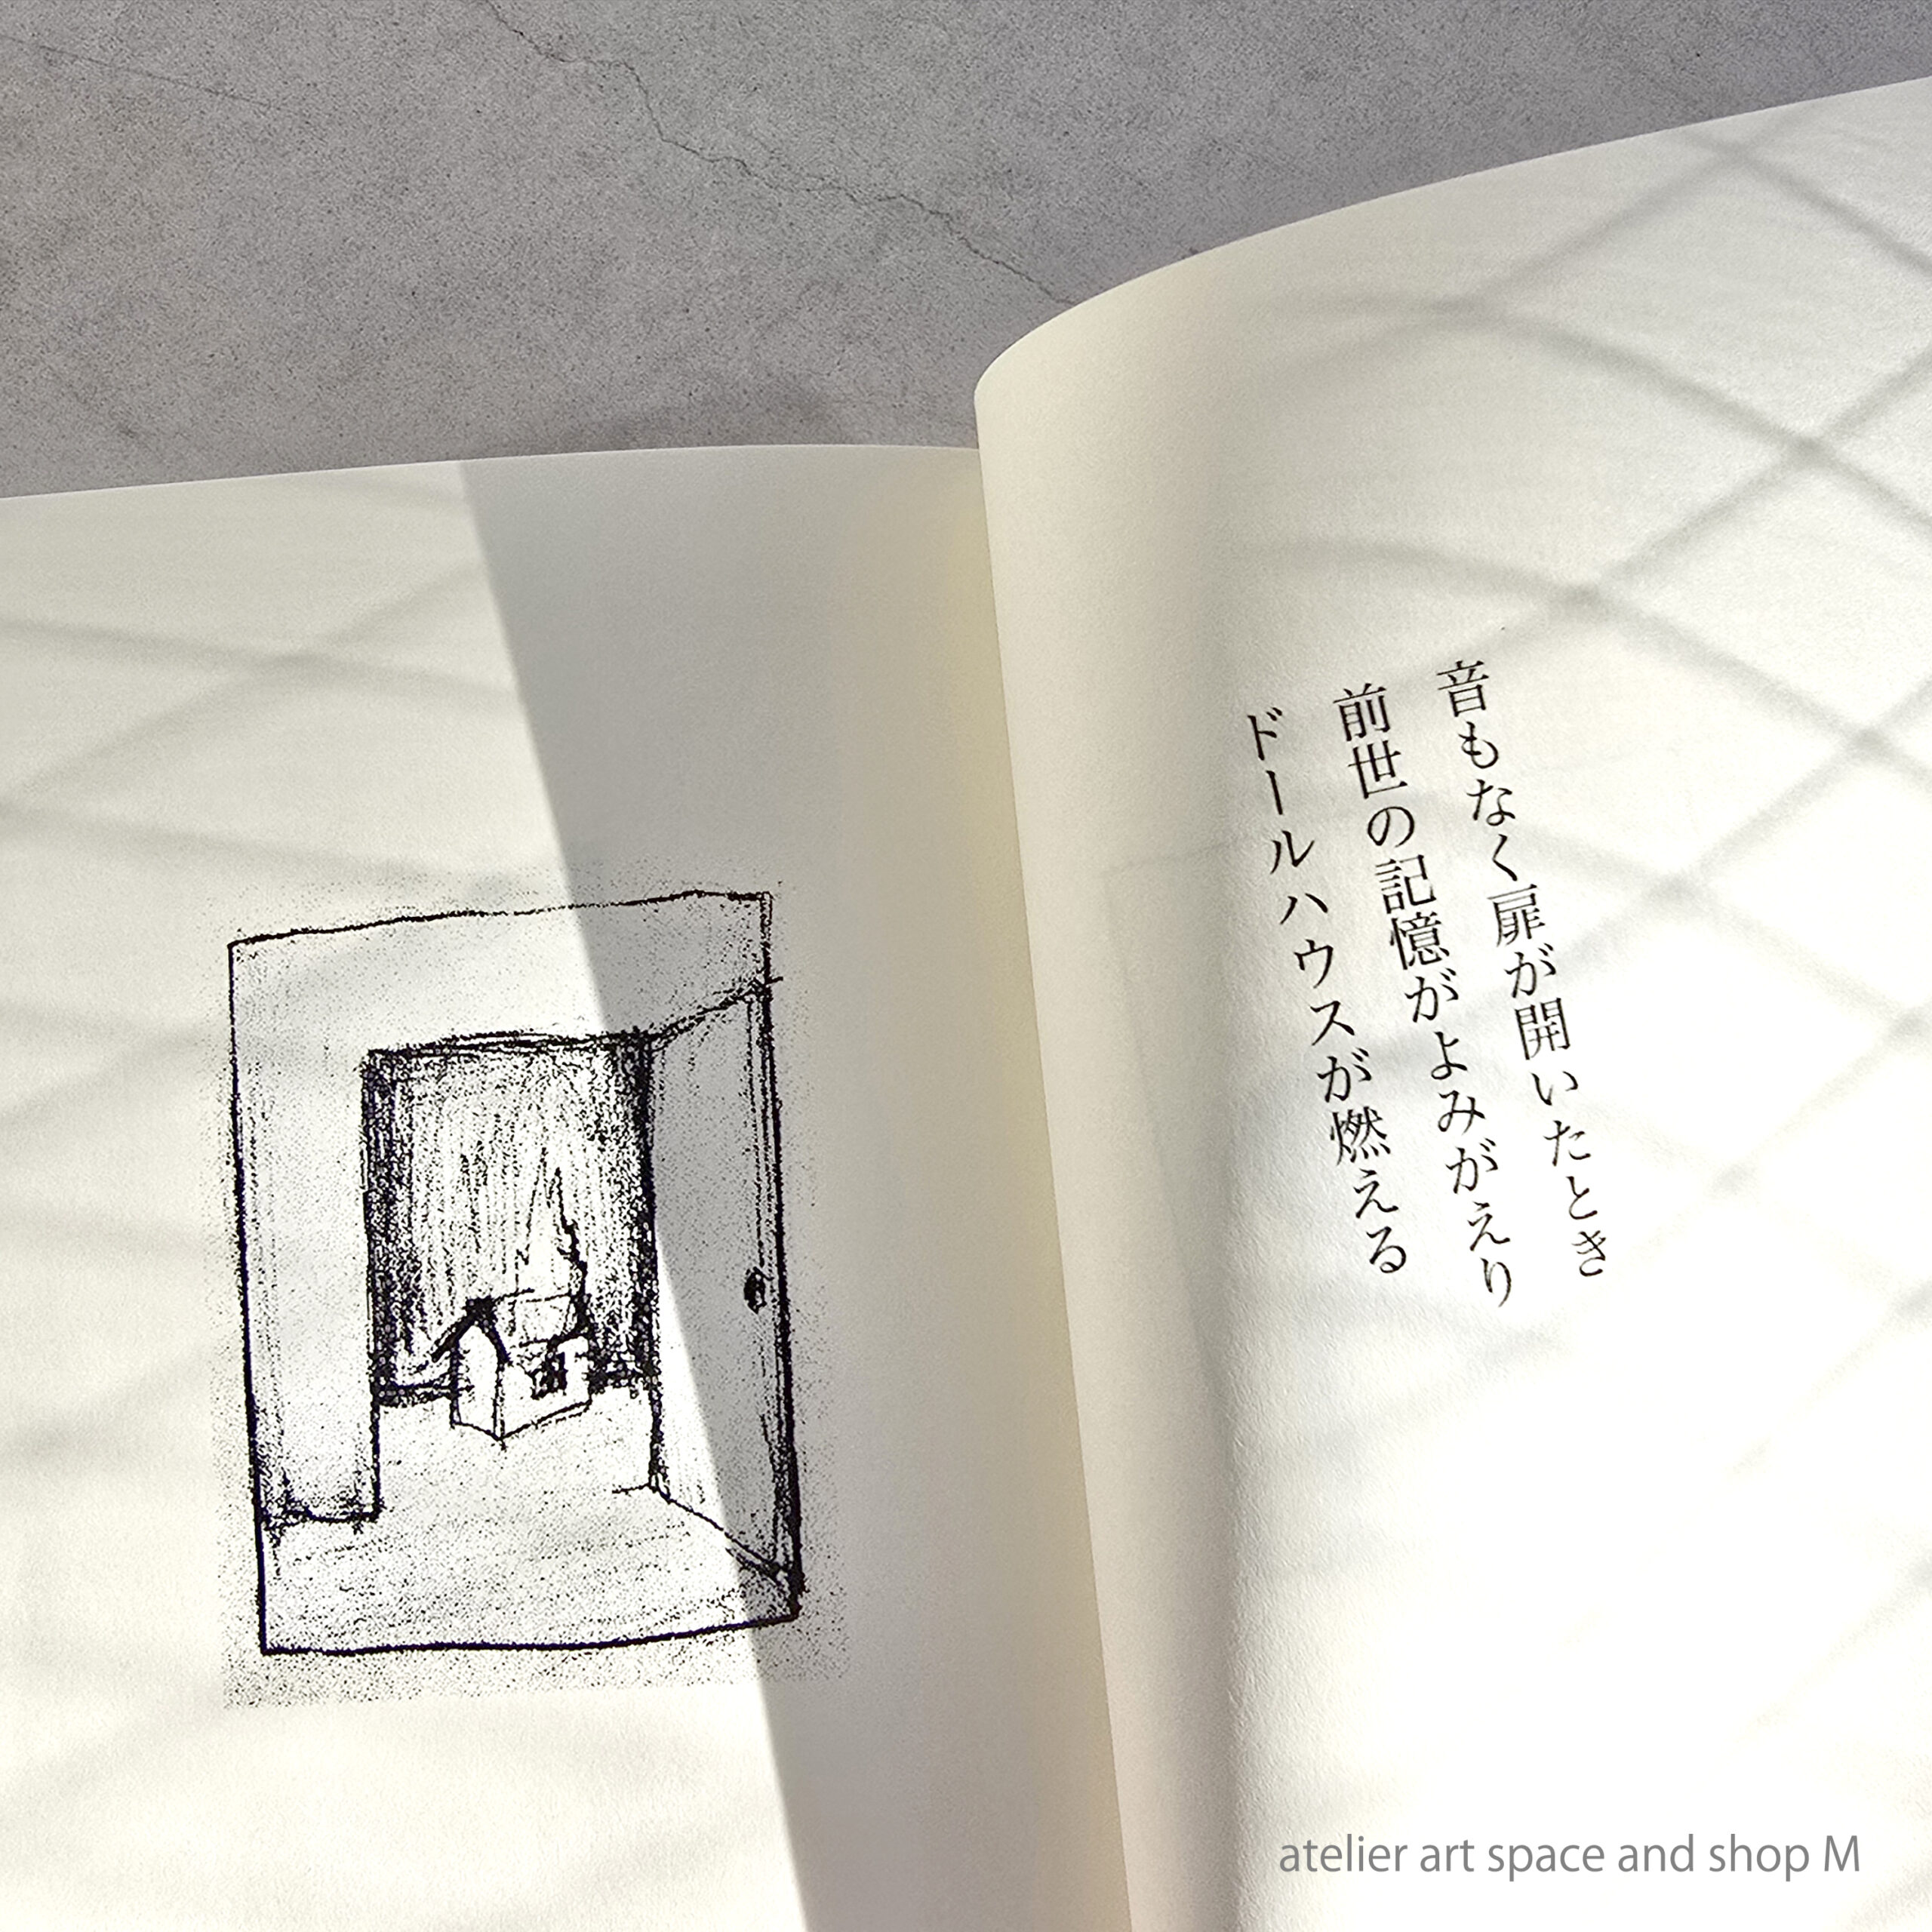 音もなく扉が開いたとき
前世の記憶がよみがえり
ドールハウスが燃える
atelier art space and shop M